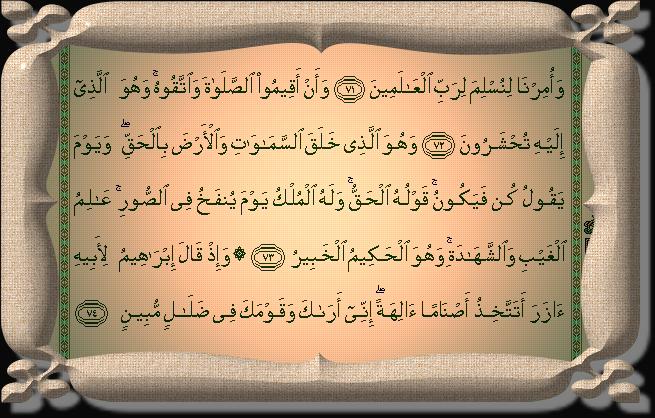 وَأُمِرْنَا لِنُسْلِمَ لِرَبِّ ٱلْعَـٰلَمِينَ ٧١ وَأَنْ أَقِيمُوا۟ ٱلصَّلَوٰةَ وَٱتَّقُوهُ ۚ وَهُوَ ٱلَّذِىٓ
إِلَيْهِ تُحْشَرُونَ ٧٢ وَهُوَ ٱلَّذِى خَلَقَ ٱلسَّمَـٰوَٰتِ وَٱلْأَرْضَ بِٱلْحَقِّ ۖ وَيَوْمَ
يَقُولُ كُن فَيَكُونُ ۚ قَوْلُهُ ٱلْحَقُّ ۚ وَلَهُ ٱلْمُلْكُ يَوْمَ يُنفَخُ فِى ٱلصُّورِ ۚ عَـٰلِمُ
ٱلْغَيْبِ وَٱلشَّهَـٰدَةِ ۚ وَهُوَ ٱلْحَكِيمُ ٱلْخَبِيرُ ٧٣ ۞ وَإِذْ قَالَ إِبْرَٰهِيمُ لِأَبِيهِ
ءَازَرَ أَتَتَّخِذُ أَصْنَامًا ءَالِهَةً ۖ إِنِّىٓ أَرَىٰكَ وَقَوْمَكَ فِى ضَلَـٰلٍ مُّبِينٍ ٧٤